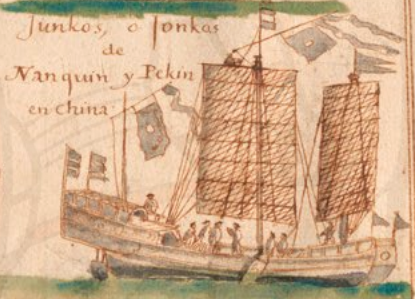 Junkos, o Jonkos
de
Nanquin y Pekin
en China